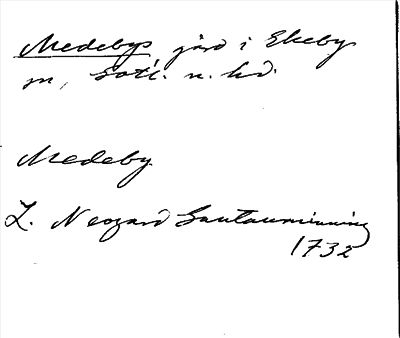 Medebys jord i Ekeby
sn, Gotl. n. hd.
Medeby
L. Neogard Gautauminning
1732